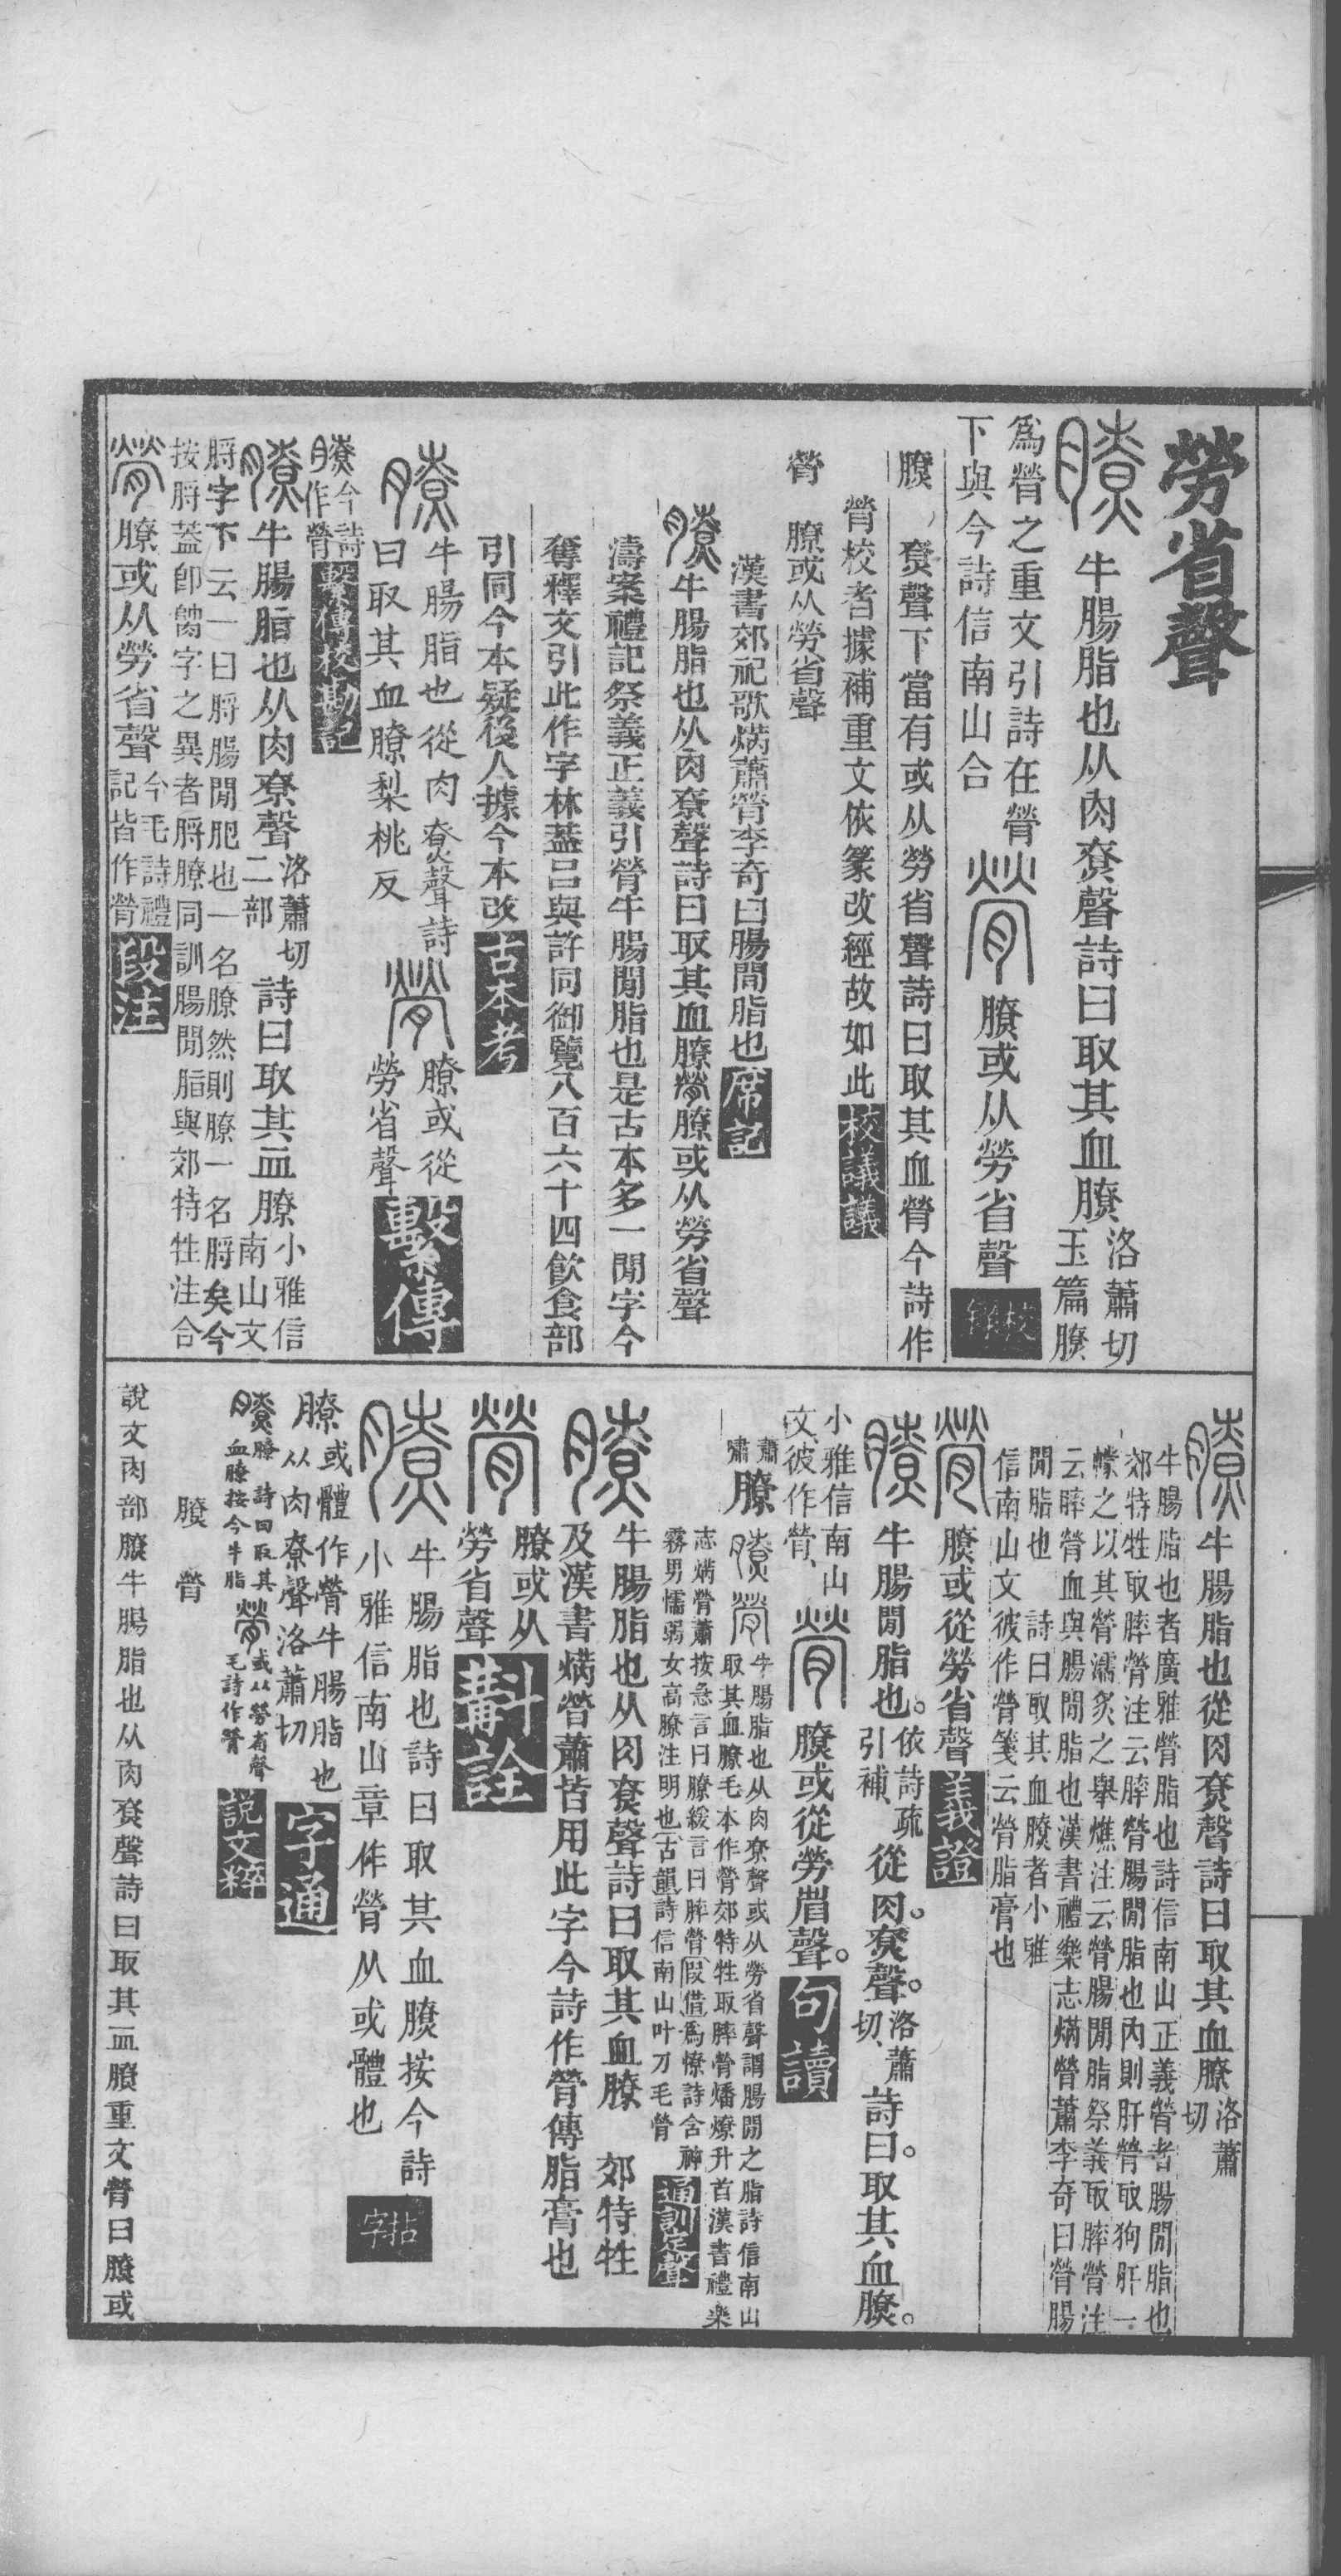 勞省聲
膫 牛腸脂也从肉尞聲詩曰取其血膫
洛蕭切
玉篇膫
為膋之重文引詩在膋
下與今詩信南山合
膋 膫或从勞省聲
校錄
膫 尞聲下當有或从勞省聲詩曰取其血膋今詩作
膋校者據補重文依篆改經故如此 校議議
膋 膫或从勞省聲
漢書郊祀歌焫蕭膋李奇曰腸間脂也 席記
膫牛腸脂也从肉尞聲詩曰取其血膫膋膫或从勞省聲
濤案禮記祭義正義引膋牛腸閒脂也是古本多一閒字今
奪釋文引此作字林葢呂與許同御覽八百六十四飲食部
引同今本疑後人據今本改 古本考
膫 牛腸脂也從肉尞聲詩
曰取其血膫梨桃反
膋 膫或從
勞省聲 繫傳
膫今詩
作膋 繫傳校勘記
膫 牛腸脂也从肉尞聲
洛蕭切
二部
詩曰取其血膫
小雅信
南山文
脟字下云一曰脟腸閒肥也一名膫然則膫一名脟矣今
按脟葢卽臠字之異者脟膫同訓腸閒脂與郊特牲注合
膋 膫或从勞省聲
今毛詩禮
記皆作膋 段注
膫 牛腸脂也從肉尞聲詩曰取其血膫
洛蕭
切
牛腸脂也者廣雅膋脂也詩信南山正義膋者腸閒脂也
郊特牲取膟膋注云膟膋腸閒脂也內則肝膋取狗肝一
幪之以其膋濡炙之舉燋注云膋腸閒脂祭義取膟膋注
云膟膋血與腸閒脂也漢書禮樂志焫膋蕭李奇曰膋腸
閒脂也 詩曰取其血膫者小雅
信南山文彼作膋箋云膋脂膏也
膋 膫或從勞省聲 義證
膫 牛腸閒脂也。
依詩疏
引補、
從肉。尞聲。
洛蕭
切、
詩曰。取其血膫。
小雅信南山
文、彼作膋、
膋 膫或從勞省聲。 句讀
蕭
嘯
膫 膫膋
牛腸脂也从肉尞聲或从勞省聲謂腸閒之脂詩信南山
取其血膫毛本作膋郊特牲取膟膋燔燎升首漢書禮樂
志焫膋蕭按急言曰膫緩言曰膟膋假借為憭詩含神
霧男懦弱女高膫注明也古韻詩信南山叶刀毛膋 通訓定聲
膫 牛腸脂也从肉尞聲詩曰取其血膫 郊特牲
及漢書焫膋蕭皆用此字今詩作膋傳脂膏也
膋 膫或从
勞省聲 斠詮
膫 牛腸脂也詩曰取其血膫按今詩
小雅信南山章作膋从或體也 拈字
膫或體作膋牛腸脂也
从肉尞聲洛蕭切 字通
膫膫 詩曰取其
血膫按今牛脂
膋或从勞省聲
毛詩作膋 說文粹
膫 膋
說文肉部膫牛腸脂也从肉尞聲詩曰取其血膫重文膋曰膫或